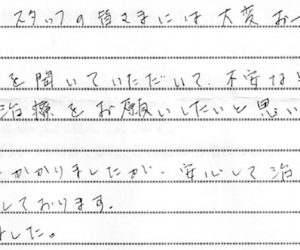 スタッフの皆さまには大変お
を聞いていただいて、不安な
治療をお願いしたいと思い
かかりましたが、安心して治
しております。
ました。